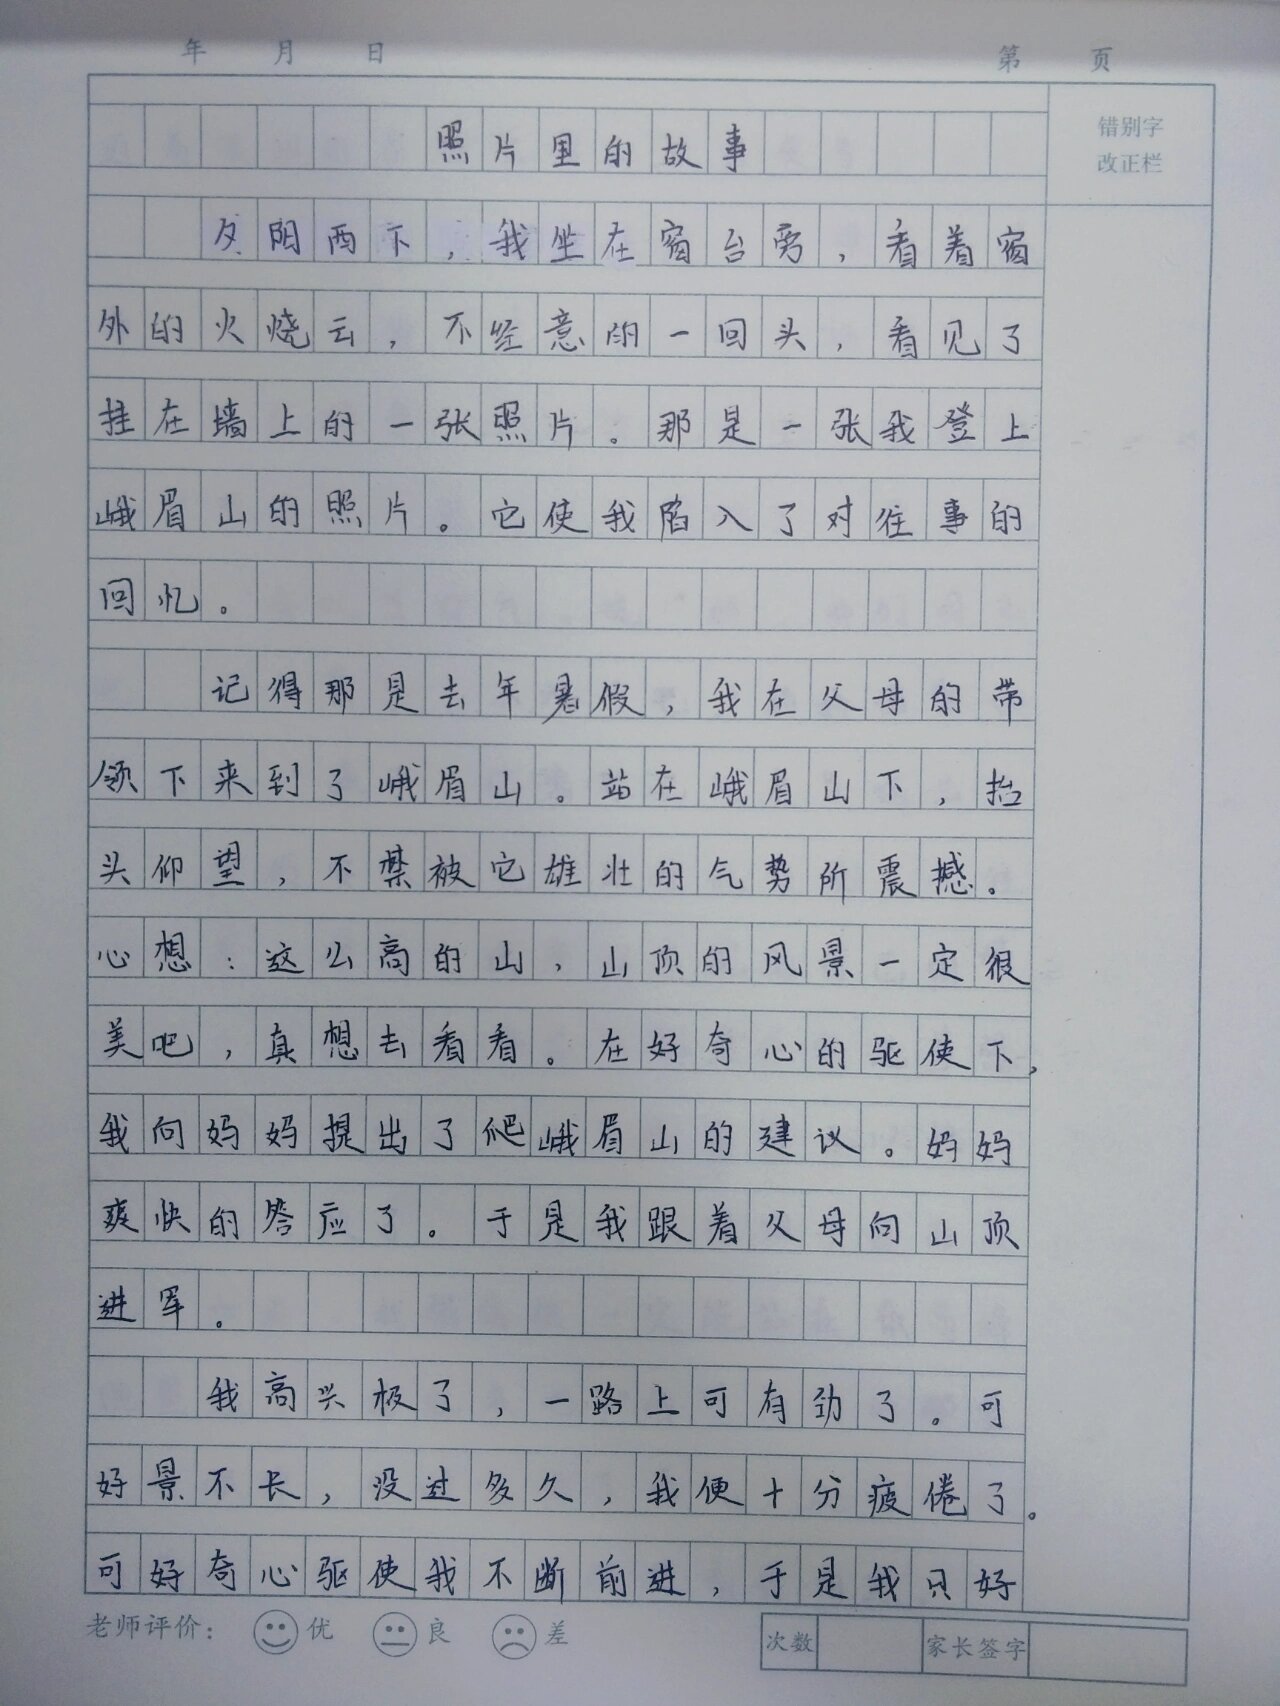 年 月 日 第 页
错别字
改正栏
照片里的故事
夕阳西下，我坐在窗台旁，看着窗
外的火烧云，不经意的一回头，看见了
挂在墙上的一张照片。那是一张我登上
峨眉山的照片。它使我陷入了对往事的
回忆。
记得那是去年暑假，我在父母的带
领下来到了峨眉山。站在峨眉山下，抬
头仰望，不禁被它雄壮的气势所震撼。
心想：这么高的山，山顶的风景一定很
美吧，真想去看看。在好奇心的驱使下，
我向妈妈提出了爬峨眉山的建议。妈妈
爽快的答应了。于是我跟着父母向山顶
进军。
我高兴极了，一路上可有劲了。可
好景不长，没过多久，我便十分疲倦了。
可好奇心驱使我不断前进，于是我只好
老师评价： 优 良 差
次数 家长签字